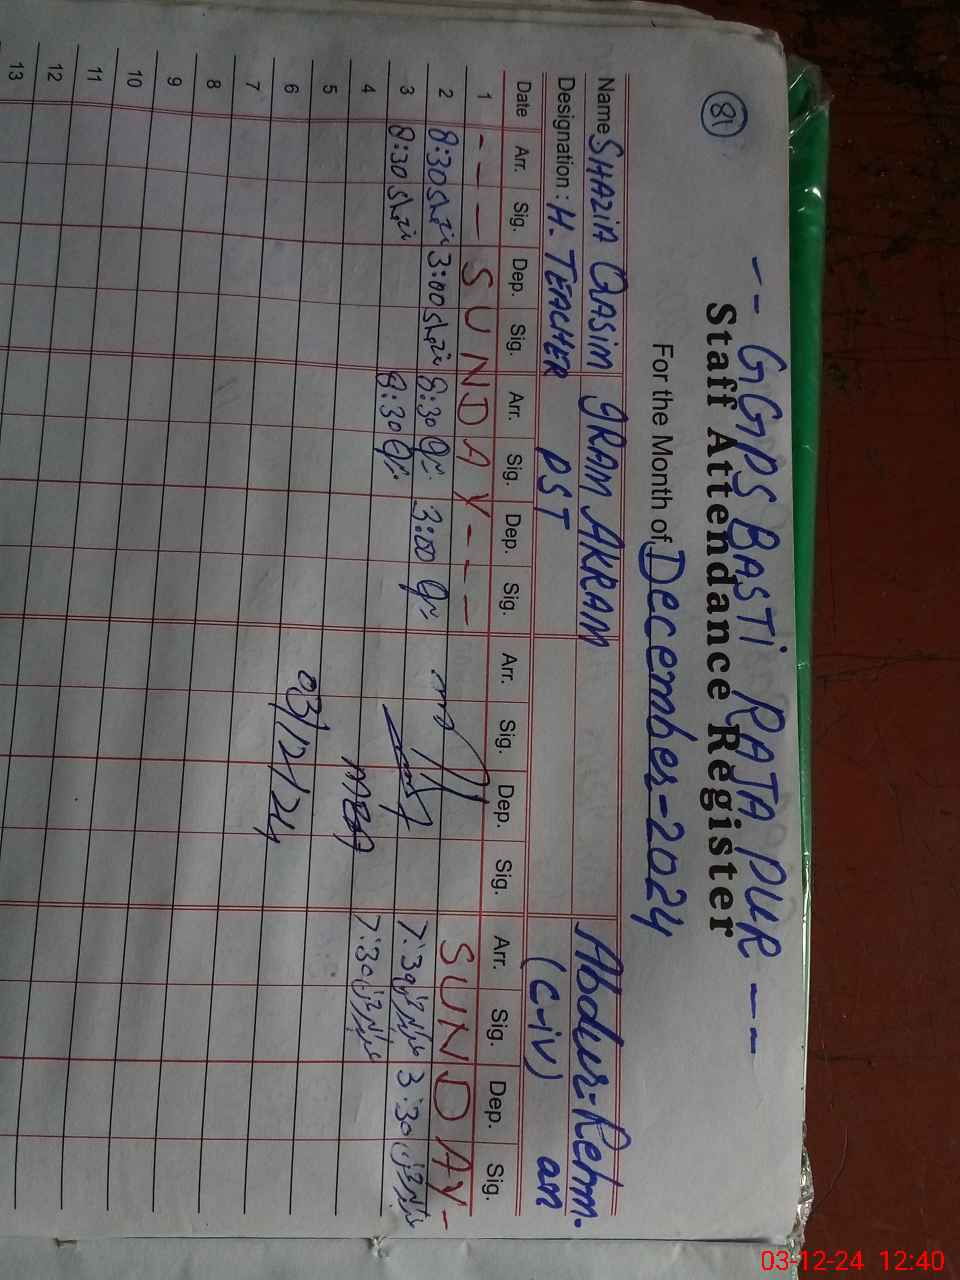 81
-- GGPS BASTI RATA PUR --
Staff Attendance Register
For the Month of December-2024
Name SHAZIA QASIM IRAM AKRAM Abdur-Rehm-
Designation : H. TEACHER PST (C-iv) an
Date Arr. Sig. Dep. Sig. Arr. Sig. Dep. Sig. Arr. Sig. Dep. Sig. Arr. Sig. Dep. Sig.
1 --- SUNDAY --- SUNDAY -
2 8:30 3:00 8:30 3:00 7:30 3:30
3 8:30 8:30 7:30
4
5
6 03/12/24
7
8
9
10
11
12
13
03-12-24 12:40